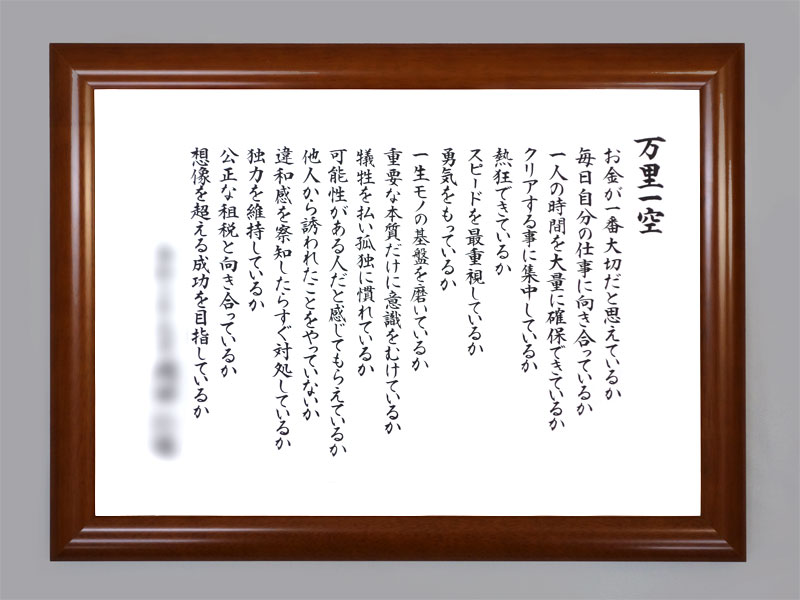 万里一空
お金が一番大切だと思えているか
毎日自分の仕事に向き合っているか
一人の時間を大量に確保できているか
クリアする事に集中しているか
熱狂できているか
スピードを最重視しているか
勇気をもっているか
一生モノの基盤を磨いているか
重要な本質だけに意識をむけているか
犠牲を払い孤独に慣れているか
可能性がある人だと感じてもらえているか
他人から誘われたことをやっていないか
違和感を察知したらすぐ対処しているか
独力を維持しているか
公正な租税と向き合っているか
想像を超える成功を目指しているか